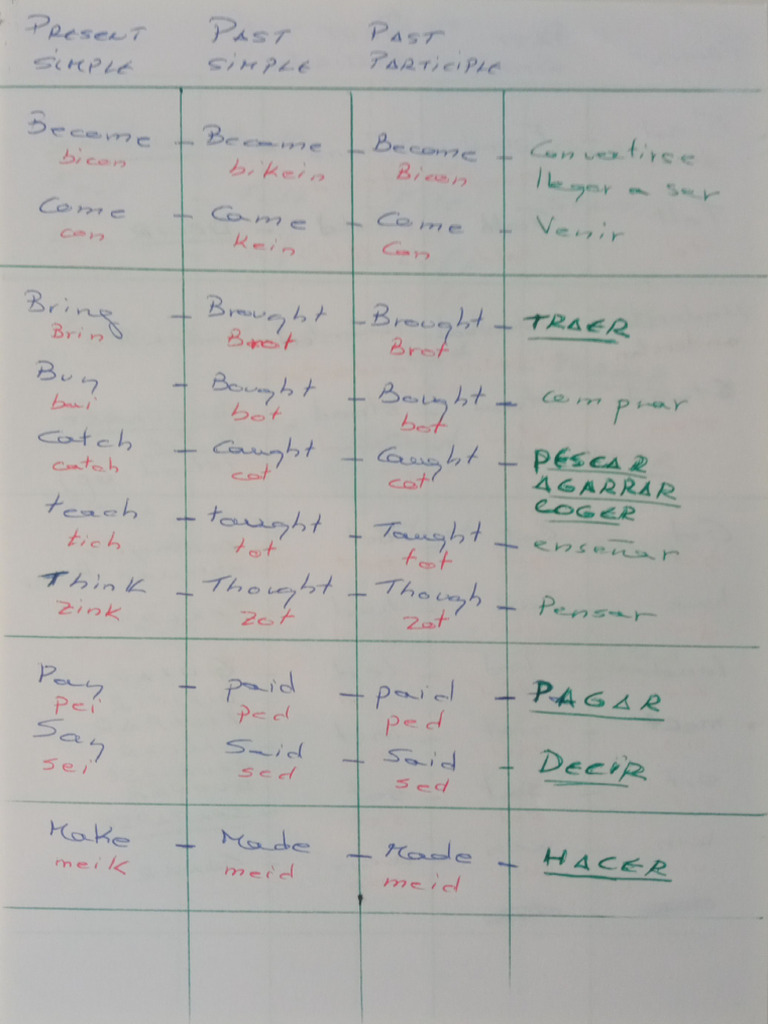 PRESENT PAST PAST
SIMPLE SIMPLE PARTICIPLE
Become - Became - Become - Convertirse
bicon bikein Bicon llegar a ser
Come - Came - Come - Venir
con kein Con
Bring - Brought - Brought - TRAER
Brin Brot Brot
Buy - Bought - Bought - comprar
bai bot bot
Catch - Caught - Caught - PESCAR
catch cot cot AGARRAR
COGER
teach - taught - Taught - enseñar
tich tot tot
Think - Thought - Though - Pensar
zink zot zot
Pay - paid - paid - PAGAR
pei ped ped
Say Said - Said - DECIR
sei sed sed
Make - Made - Made - HACER
meik meid meid